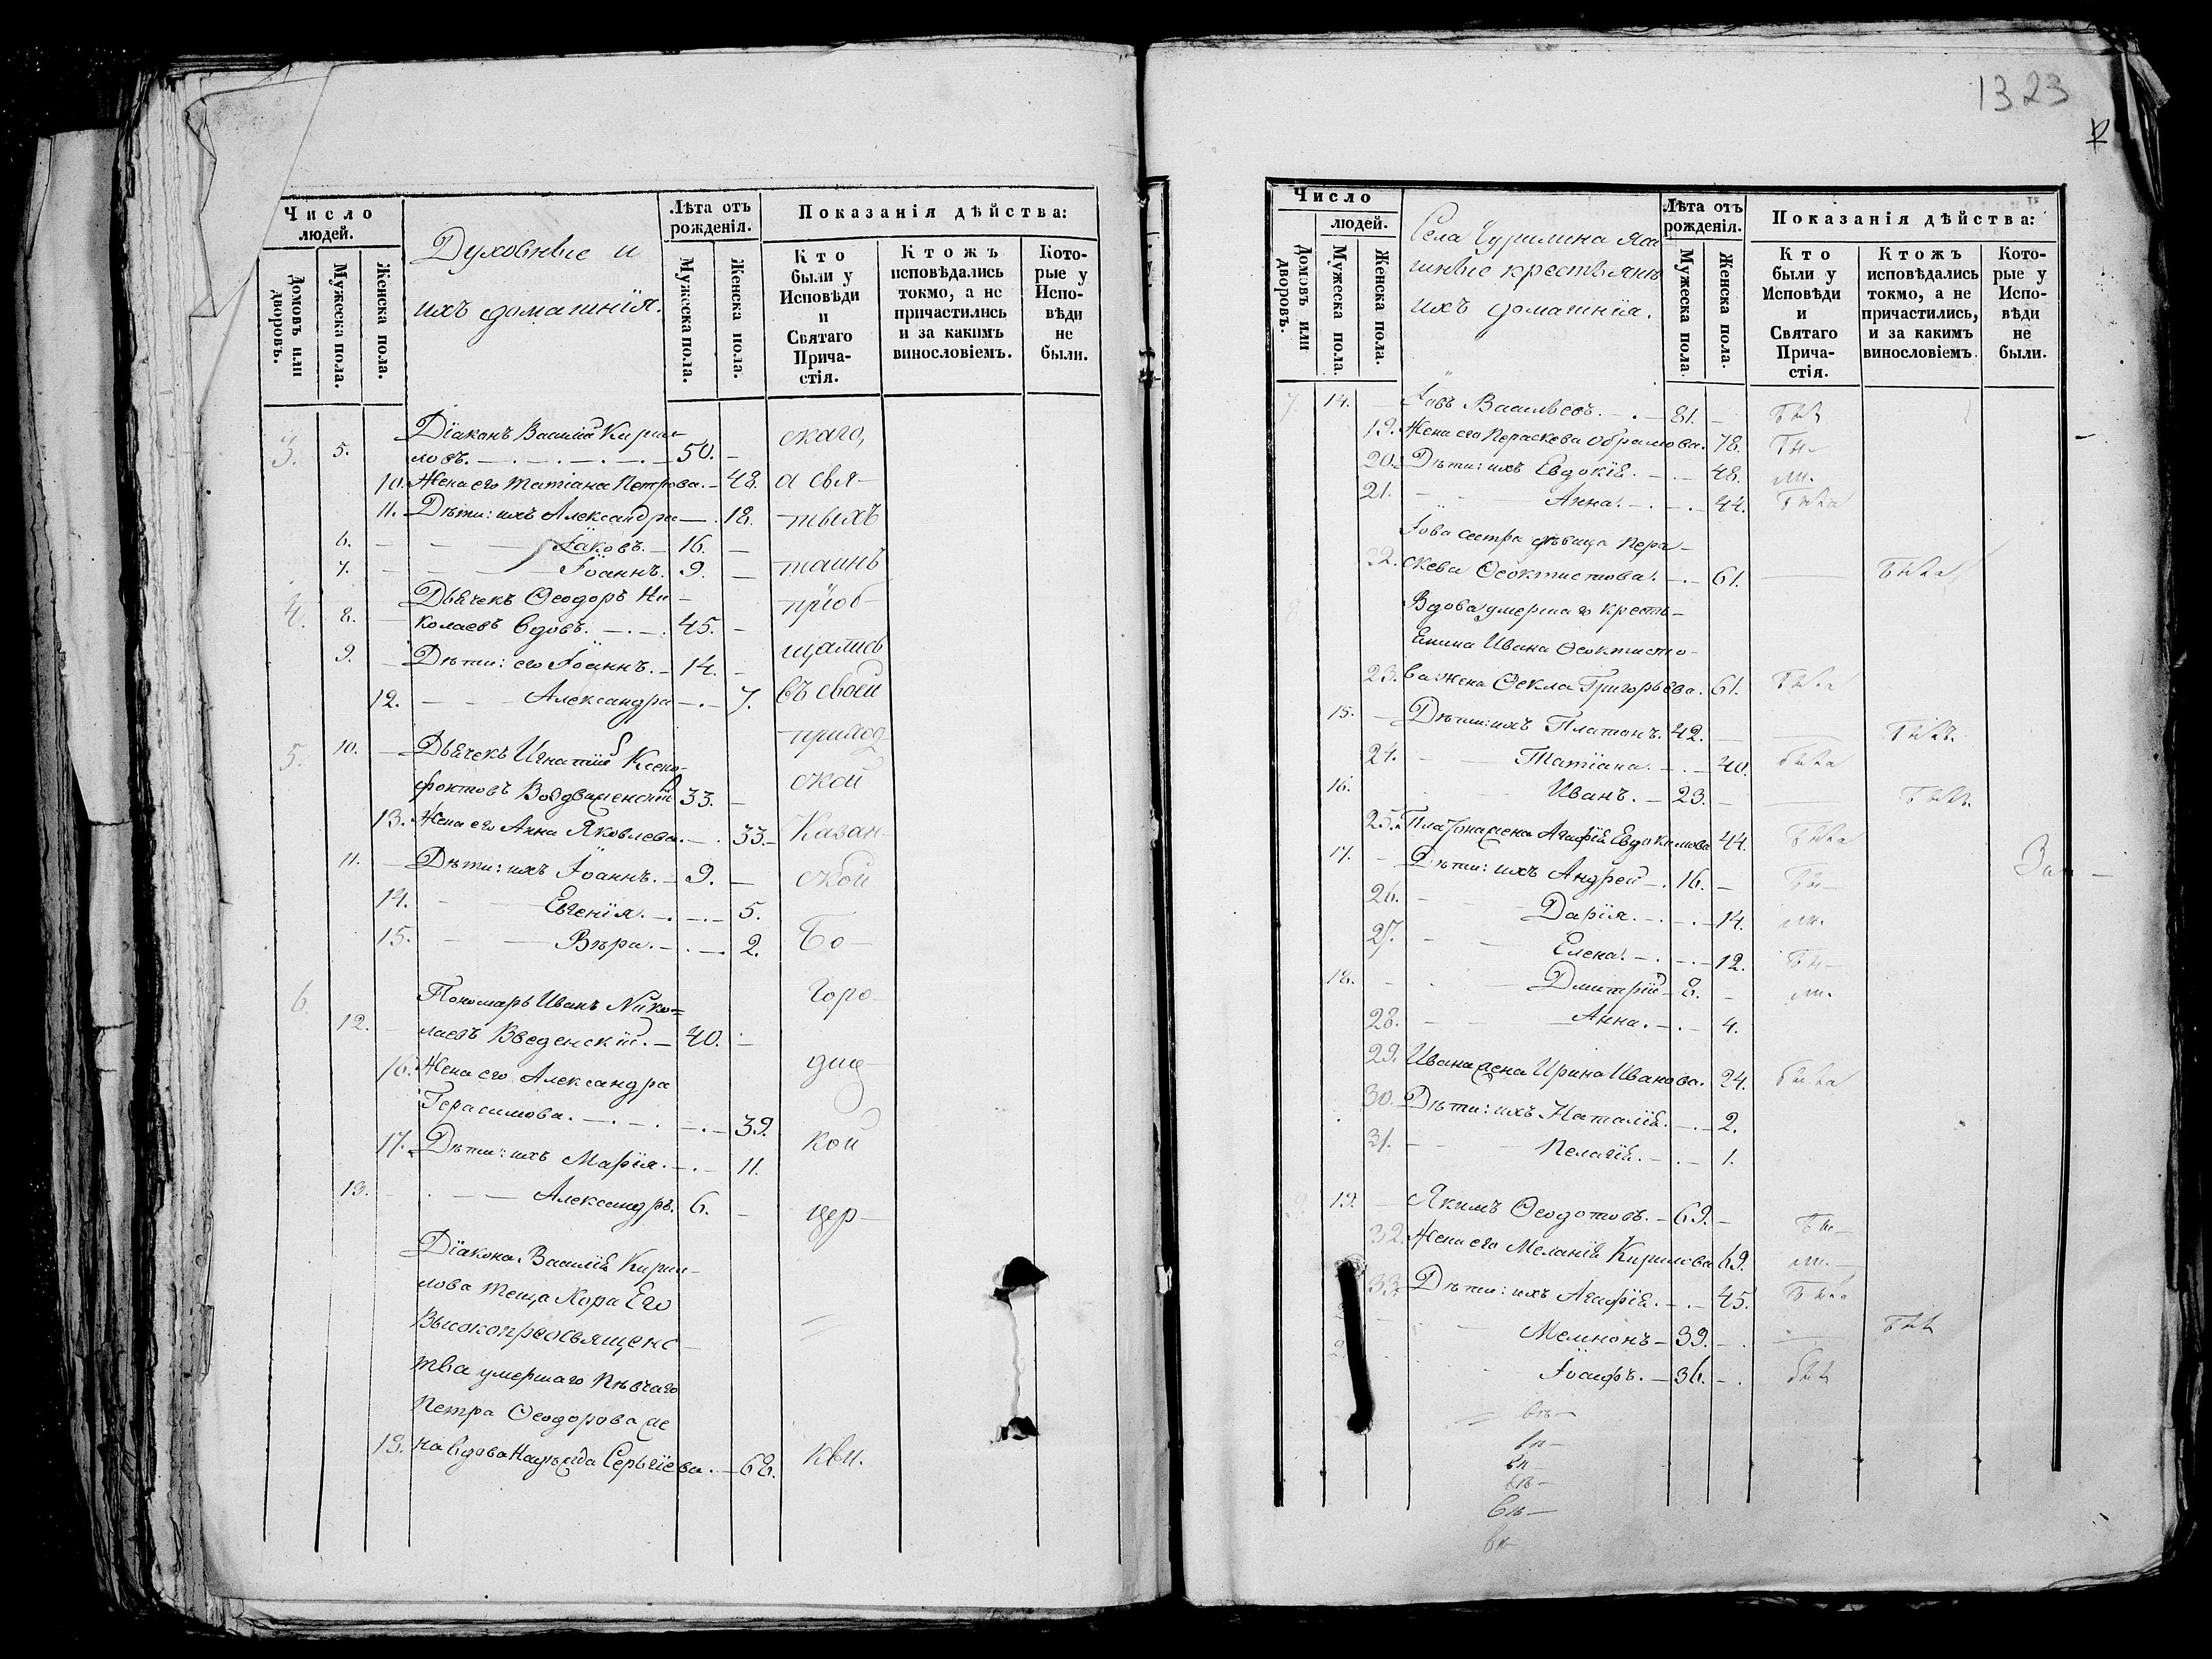 Число
людей.
Домовъ или дворовъ.
Мужеска пола.
Женска пола.
Духовные и
ихъ домашнія.
Лѣта отъ
рожденія.
Мужеска пола.
Женска пола.
Показанія дѣйства:
Кто
были у
Исповѣди
и
Святаго
Прича-
стія.
Ктожъ
исповѣдались
токмо, а не
причастились
и за какимъ
винословіемъ.
Кото-
рые у
Испо-
вѣди
не
были.
3. 5. Діаконъ Василій Кирил-
ловъ. 50. скаго,
10. Жена его Татіана Петрова. 48. а свя-
11. Дѣти: ихъ Александра 18. тыхъ
6. Іаковъ. 16.
7. Іоаннъ. 9. таинъ
4. 8. Дьячекъ Ѳеодоръ Ни- пріоб-
колаевъ вдовъ. 45.
9. Дѣти: его Іоаннъ. 14. щались
12. Александра 7. въ своей
приход
5. 10. Дьячекъ Игнатій Ксено-
фонтовъ Воздвиженскій 33. ской
13. Жена его Анна Яковлева. 33. Казан-
11. Дѣти: ихъ Іоаннъ. 9. ской
14. Евгенія. 5.
15. Вѣра. 2. Бо-
6. Пономарь Иванъ Нико- горо-
12. лаевъ Введенскій. 40.
16. Жена его Александра диц-
Герасимова. 39.
17. Дѣти: ихъ Марія. 11. кой
13. Александръ. 6. цер-
Діакона Василія Кирил-
лова теща Хора Его
Высокопреосвященс-
тва умершаго пѣвчаго
Петра Ѳеодорова же
18. на вдова Надежда Сергіева. 68. кви.
1323
Число
людей.
Домовъ или дворовъ.
Мужеска пола.
Женска пола.
Села Чурилина Яса
шные крестьянъ
ихъ домашнія.
Лѣта отъ
рожденія.
Мужеска пола.
Женска пола.
Показанія дѣйства:
Кто
были у
Исповѣди
и
Святаго
Прича-
стія.
Ктожъ
исповѣдались
токмо, а не
причастились,
и за какимъ
винословіемъ.
Кото-
рые у
Испо-
вѣди
не
были.
7. 14. Іовъ Васильевъ. 81.
19. Жена его Параскева Обрамова. 78.
20. Дѣти: ихъ Евдокія. 48.
21. Анна. 44. Была
Іова сестра дѣвица Пара-
22. скева Ѳеоктистова. 61. Была
Вдова умершаго кресть-
янина Ивана Ѳеоктисто-
23. ва жена Ѳекла Григорьева. 61. Была
15. Дѣти: ихъ Платонъ. 42. Былъ.
24. Татіана. 40. Была
16. Иванъ. 23. Былъ.
25. Платона жена Агафія Евдокимова 44. Была
17. Дѣти: ихъ Андрей 16.
26. Дарія. 14.
27. Елена. 12.
18. Дмитрій 8.
28. Анна. 4.
29. Ивана жена Ирина Иванова. 24. Была
30. Дѣти: ихъ Наталія. 2.
31. Пелагія. 1.
19. Якимъ Ѳеодотовъ. 69.
32. Жена его Меланія Кирилова 69.
33. Дѣти: ихъ Агафія. 45. Была
Мемнонъ 39.
Іосифъ. 36.